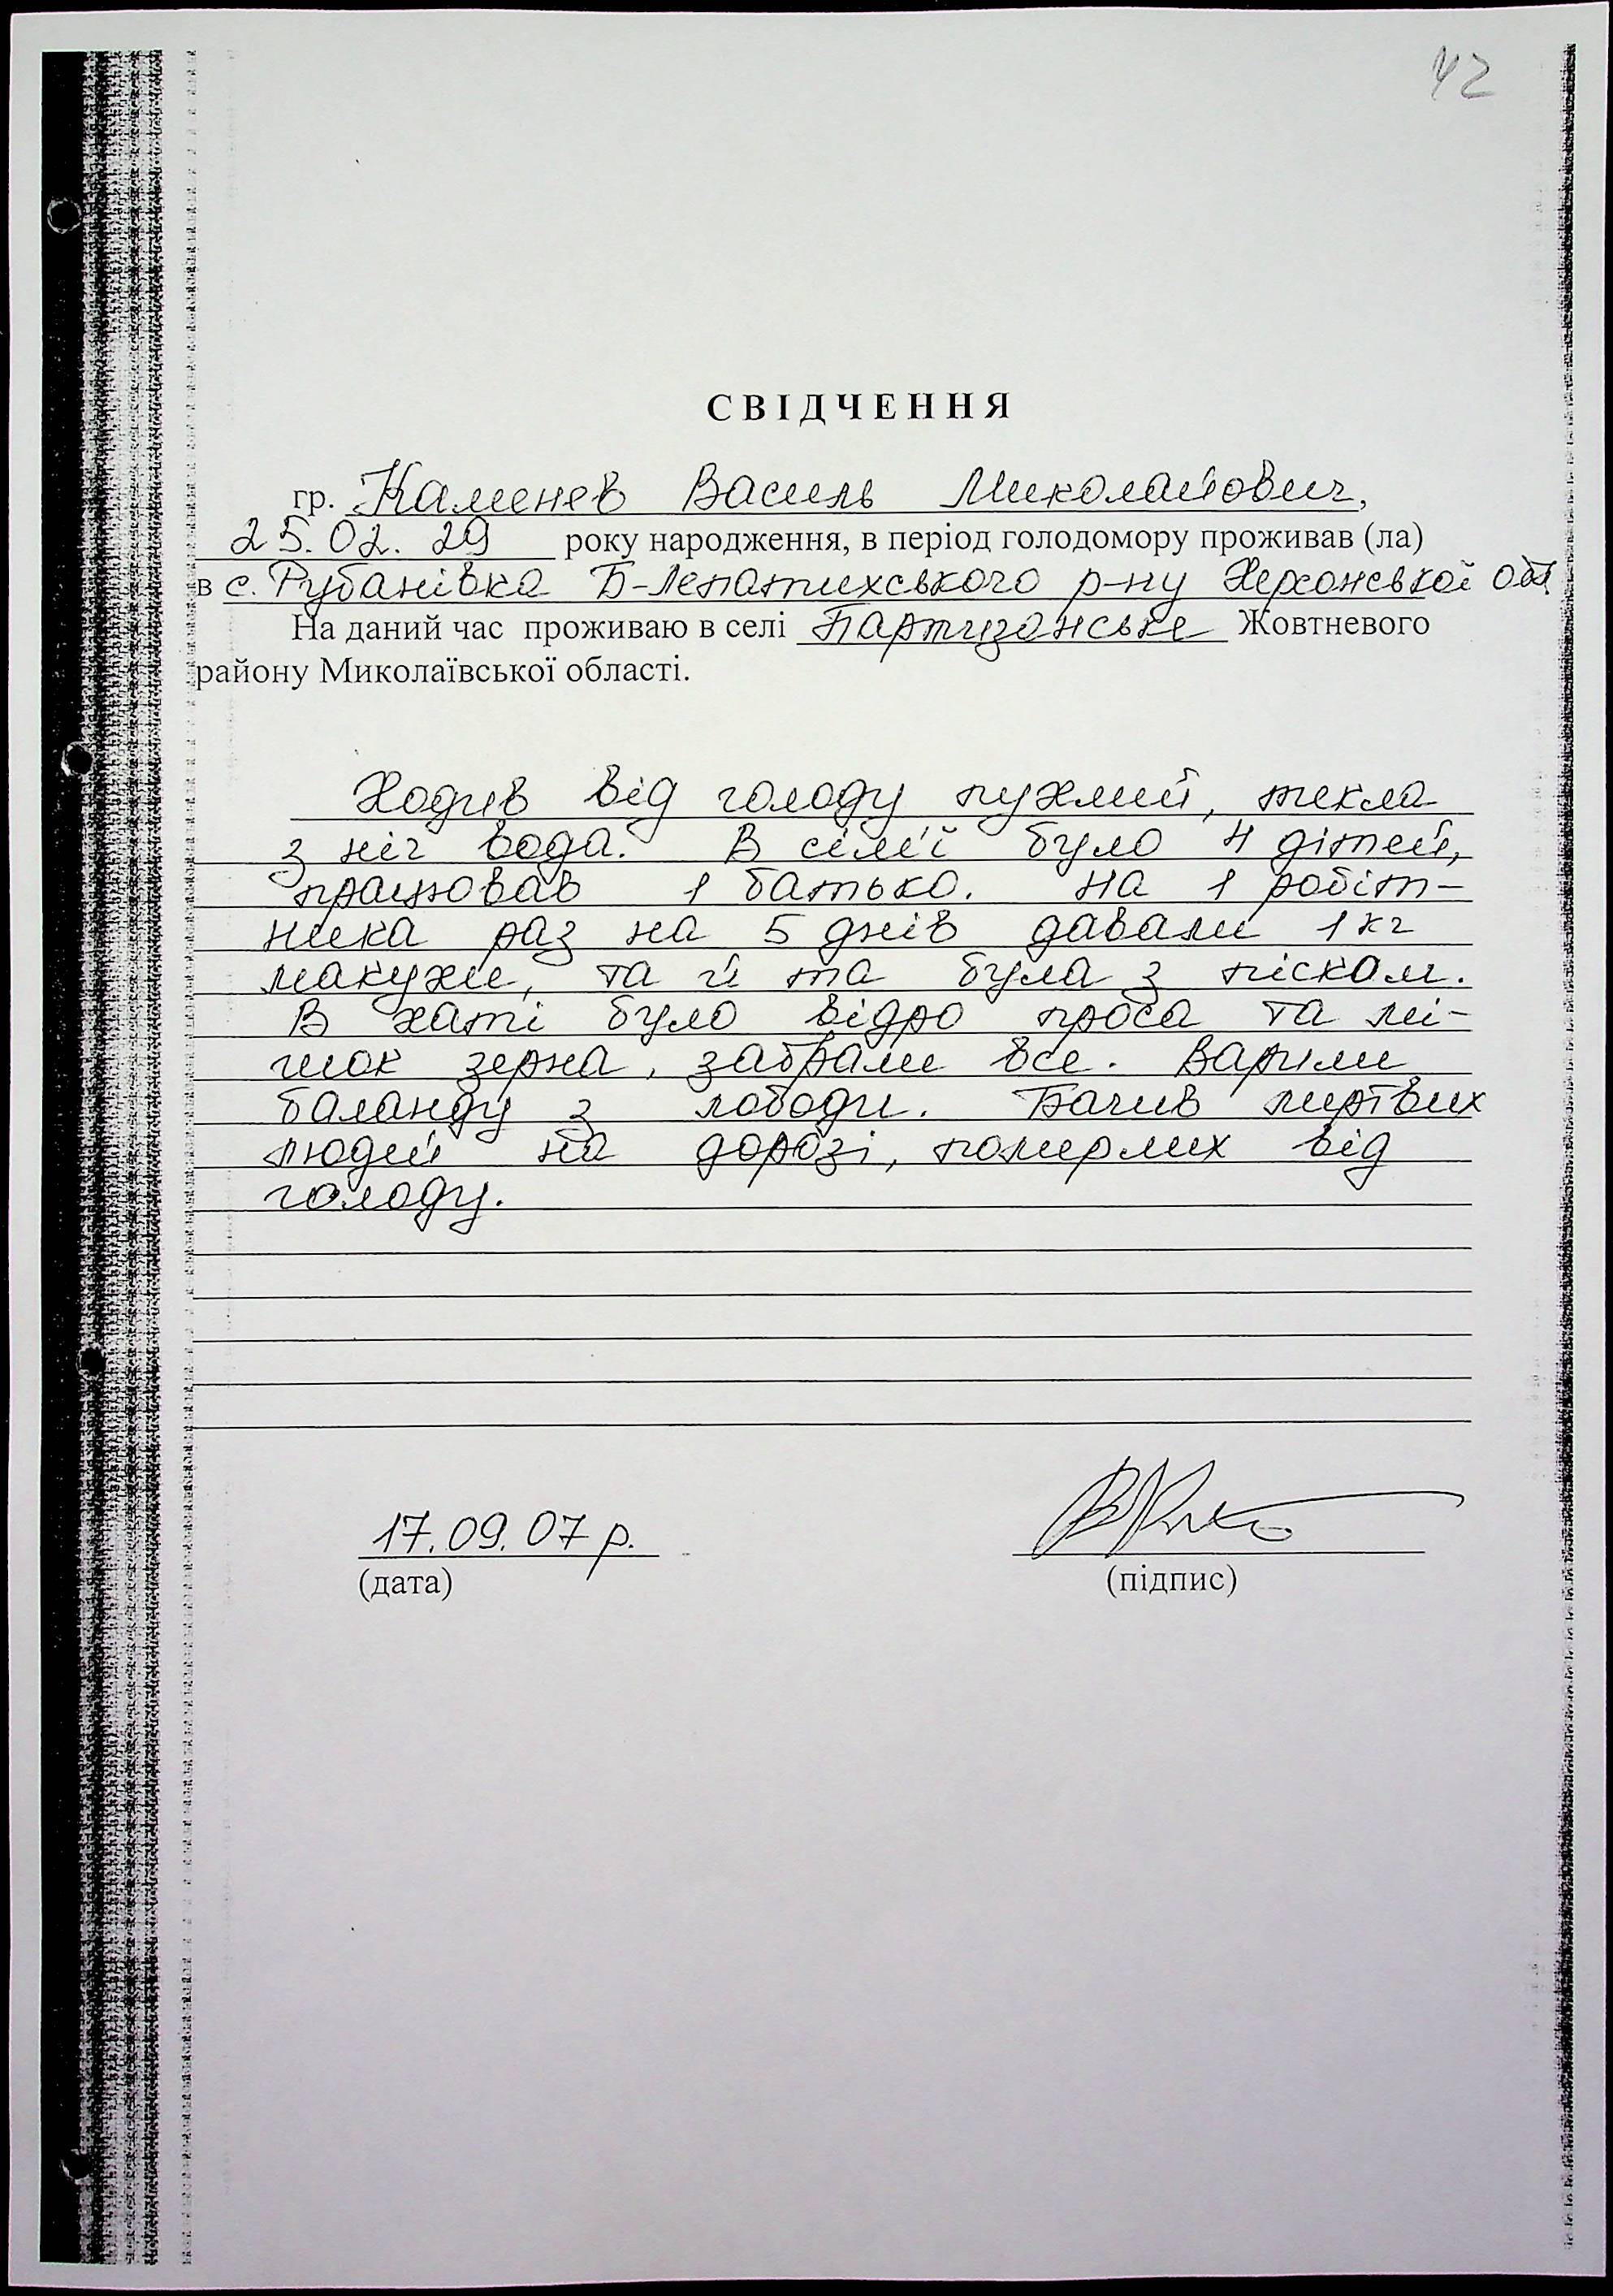 42
СВІДЧЕННЯ
гр. Каменев Василь Миколайович,
25.02.29 року народження, в період голодомору проживав (ла)
в с. Рубанівка Б-Лепатихського р-ну Херсонської обл.
На даний час проживаю в селі Партизанське Жовтневого
району Миколаївської області.
Ходив від голоду пухлий, текла
з ніг вода. В сім'ї було 4 дітей,
працював 1 батько. На 1 робіт-
ника раз на 5 днів давали 1 кг
макухи, та й та була з піском.
В хаті було відро проса та мі-
шок зерна, забрали все. Варили
баланду з лободи. Бачив мертвих
людей на дорозі, померлих від
голоду.
17.09.07 р.
(дата)
(підпис)